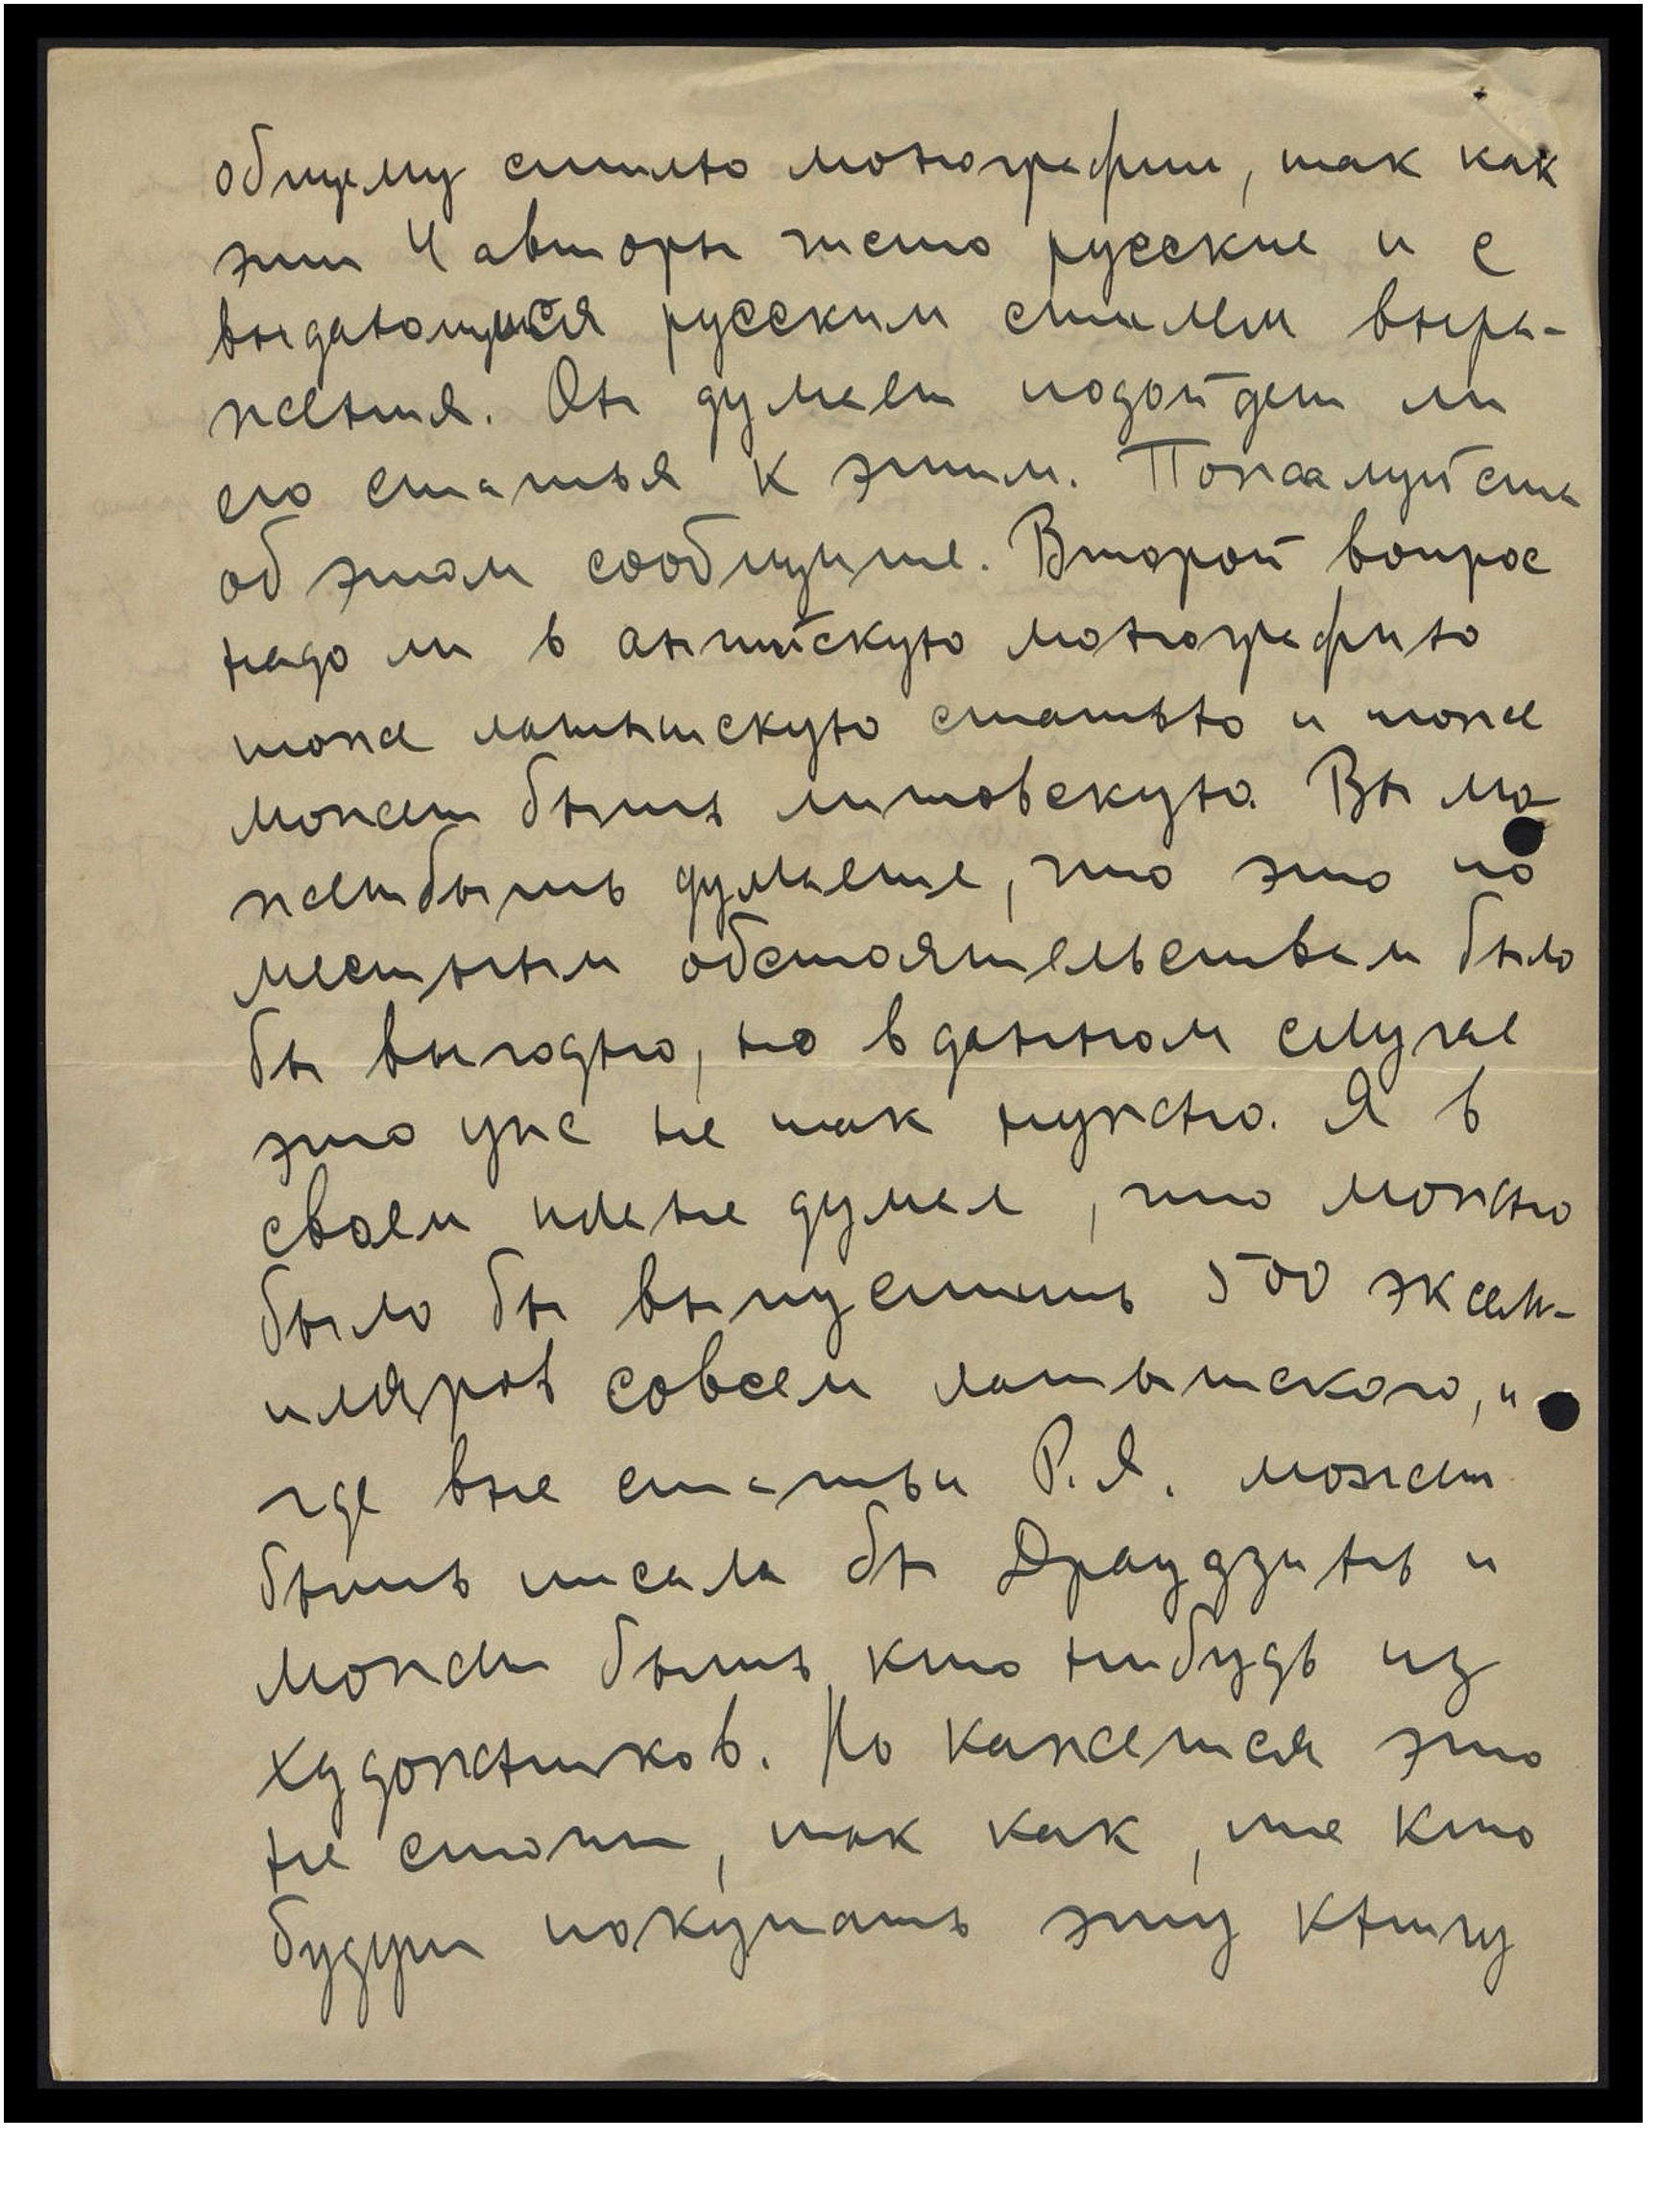 общему стилю монографии, так как
эти 4 авторы чисто русские и с
выдающися русским стилем выра-
жения. Он думает подойдет ли
его статья к этим. Пожалуйста
об этом сообщите. Второй вопрос
надо ли в английскую монографию
тоже латышскую статью и тоже
может быть литовскую. Вы мо-
жетбыть думаете, что это по
местным обстоятельствам было
бы выгодно, но в данном случае
это уже не так нужно. Я в
своем плане думал, что можно
было бы выпустить 500 эксем-
пляров совсем латышского, и
где вне статьи Р.Я. может
быть писала бы Драудзинь и
может быть кто нибудь из
художников. Но кажется это
не стоит, так как, те кто
будут покупать эту книгу